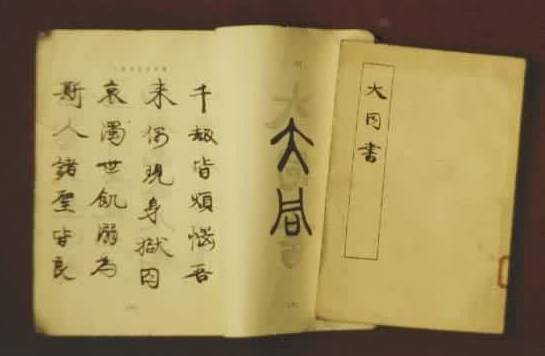 大同書
大同
千劫皆煩惱吾
来偶現身獄囚
哀濁世飢溺為
斯人諸聖皆良